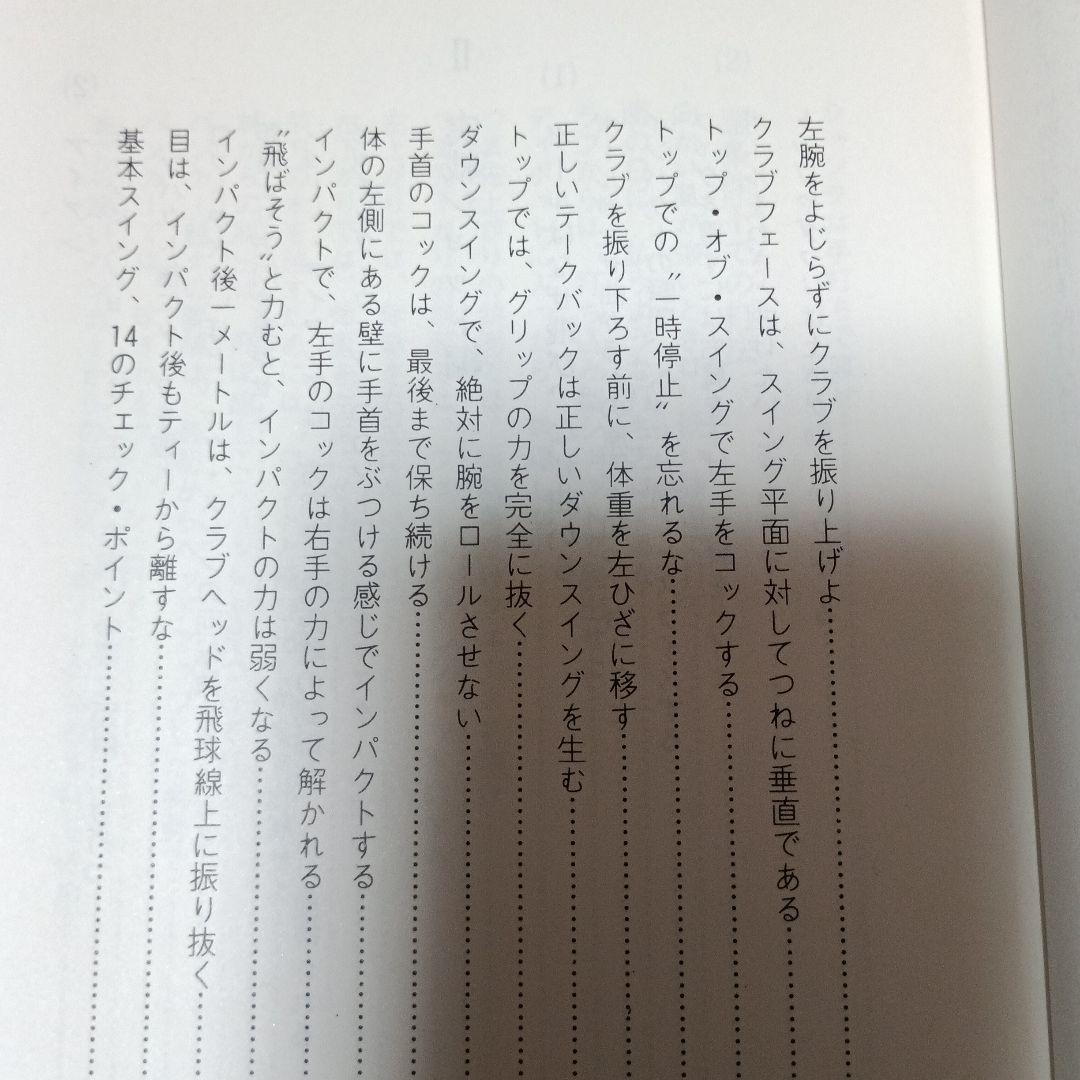 左腕をよじらずにクラブを振り上げよ……………
クラブフェースは、スイング平面に対してつねに垂直である……………
トップ・オブ・スイングで左手をコックする……………
トップでの〝一時停止〟を忘れるな……………
クラブを振り下ろす前に、体重を左ひざに移す……………
正しいテークバックは正しいダウンスイングを生む……………
トップでは、グリップの力を完全に抜く……………
ダウンスイングで、絶対に腕をロールさせない……………
手首のコックは、最後まで保ち続ける……………
体の左側にある壁に手首をぶつける感じでインパクトする……………
インパクトで、左手のコックは右手の力によって解かれる……………
〝飛ばそう〟と力むと、インパクトの力は弱くなる……………
インパクト後一メートルは、クラブヘッドを飛球線上に振り抜く……………
目は、インパクト後もティーから離すな……………
基本スイング、14のチェック・ポイント……………